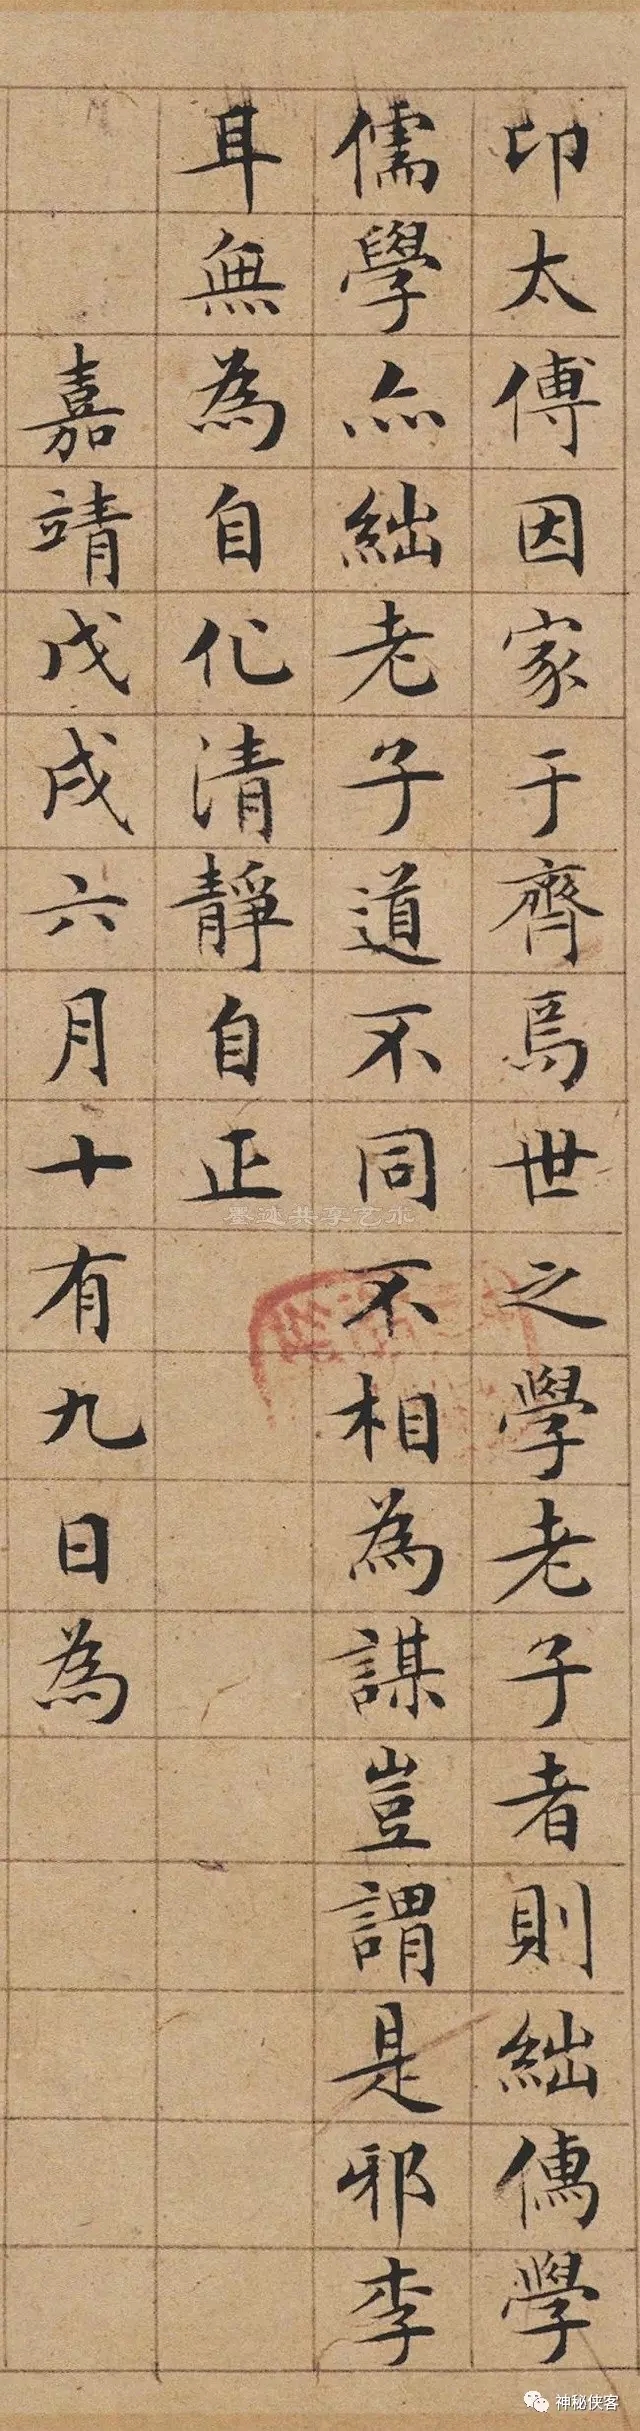 卬太傅因家于齊焉世之學老子者則絀儒學
儒學亦絀老子道不同不相為謀豈謂是邪李
耳無為自化清靜自正
嘉靖戊戌六月十有九日為
墨迹共享艺术
神秘侠客